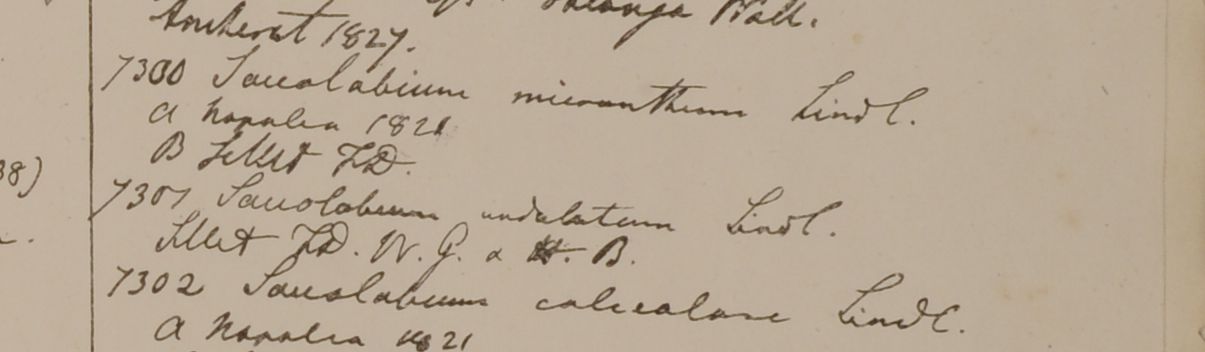 Wall.
Amherst 1827.
7300 Saccolabium micranthum Lindl.
a Napalia 1821
B Sillet FD.
38)
7301 Saccolabium undulatum Lindl.
Sillet FD. W. G. a H. B.
7302 Saccolabium calceolare Lindl.
a Napalia 1821